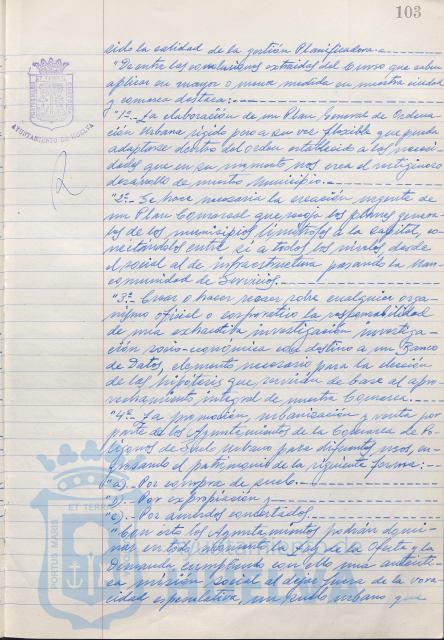 103
sido la calidad de la gestión Planificadora.-
"De entre las conclusiones extraidas del Curso que caben
aplicar en mayor o menor medida en nuestra ciudad
y comarca destaca:-
"1ª.- La elaboración de un Plan General de Ordena-
ción Urbana rígido pero a su vez flexible que pueda
adaptarse dentro del orden establecido a las necesi-
dades que en su momento nos crea el vertiginoso
desarrollo de nuestro Municipio.-
"2ª.- Se hace necesaria la creación urgente de
un Plan Comarcal que recoja los planes genera-
les de los municipios limítrofes a la capital, co-
nectándolos entre sí a todos los niveles desde
el social al de infraestructura pasando la Man-
comunidad de Servicios.-
"3ª.- Crear o hacer recaer sobre cualquier orga-
nismo oficial o corporativo la responsabilidad
de una exhaustiva investigación investiga-
ción socio-económica con destino a un Banco
de Datos, elemento necesario para la elección
de las hipótesis que servirán de base al apro-
vechamiento integral de nuestra Comarca.-
"4ª.- La promoción, urbanización y venta por
parte de los Ayuntamientos de la Comarca de Po-
lígonos de Suelo Urbano para diferentes usos, en-
grosando el patrimonio de la siguiente forma:-
"a).- Por compra de suelo.-
"b).- Por expropiación y
"c).- Por acuerdos concertados.
"Con esto los Ayuntamientos podrán domi-
nar en todo momento la Ley de la Oferta y la
Demanda cumpliendo con ello una auténti-
ca misión social al dejar fuera de la vora-
cidad especulativa, un suelo urbano que
AYUNTAMIENTO DE HUELVA
PORTUS MARIS
ET TERRAE